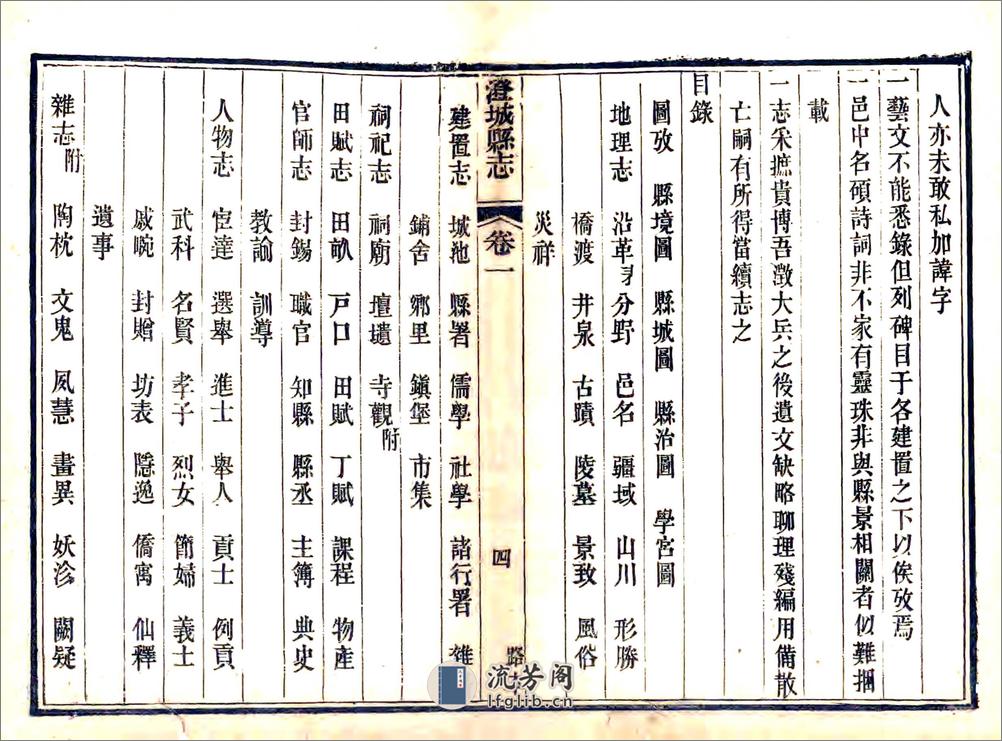 人亦未敢私加諱字
一藝文不能悉錄但列碑目于各建置之下以俟攷焉
一邑中名碩詩詞非不家有靈珠非與縣景相關者似難捆
載
一志采摭貴博吾澂大兵之後遺文缺略聊理殘編用備散
亡嗣有所得當續志之
目錄
圖攷 縣境圖 縣城圖 縣治圖 學宮圖
地理志 沿革 分野 邑名 疆域 山川 形勝
橋渡 井泉 古蹟 陵墓 景致 風俗
災祥
澄城縣志 卷一 四
建置志 城池 縣署 儒學 社學 諸行署 雜
鋪舍 鄉里 鎮堡 市集
祠祀志 祠廟 壇壝 寺觀附
田賦志 田畝 戸口 田賦 丁賦 課程 物產
官師志 封錫 職官 知縣 縣丞 主簿 典史
教諭 訓導
人物志 宦達 選舉 進士 舉人 貢士 例貢
武科 名賢 孝子 烈女 節婦 義士
戚畹 封贈 坊表 隱逸 僑寓 仙釋
遺事
雜志附 陶枕 文鬼 夙慧 畫異 妖沴 闕疑
流芳阁
lfglib.cn